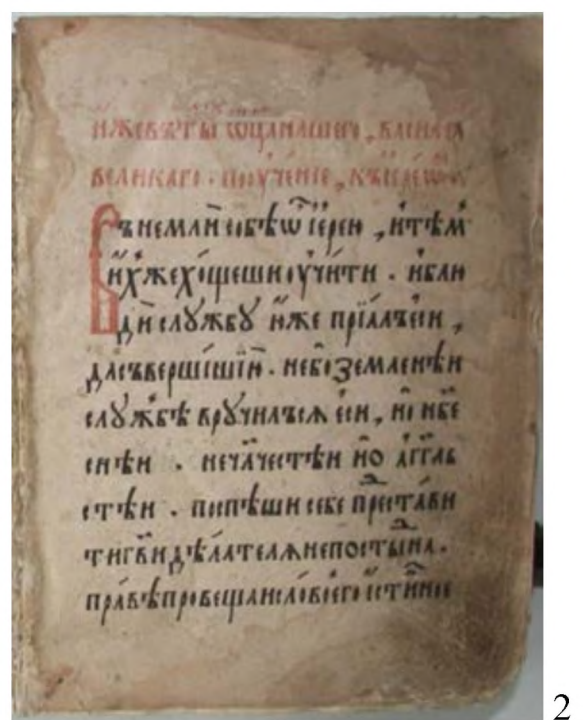 иже въ ст҃ы ѿца нашего, василїа
великаго. поученїе, къ
Вънемли себѣ ѿ їерею, и тѣм
и҆хже хощеши оучити. и блю
ди слꙋжбꙋ юже прїѧлъ еси,
да съвершиши ю. небо земленѣи
слꙋжбѣ врꙋчилъсѧ еси, но нбе
снѣи. не чл҃честѣи но аг҃гль
стѣи. поспѣши себе престави
ти бг҃ви дѣлателѧ непостыдна.
правѣ провещаи слово его истинное
2